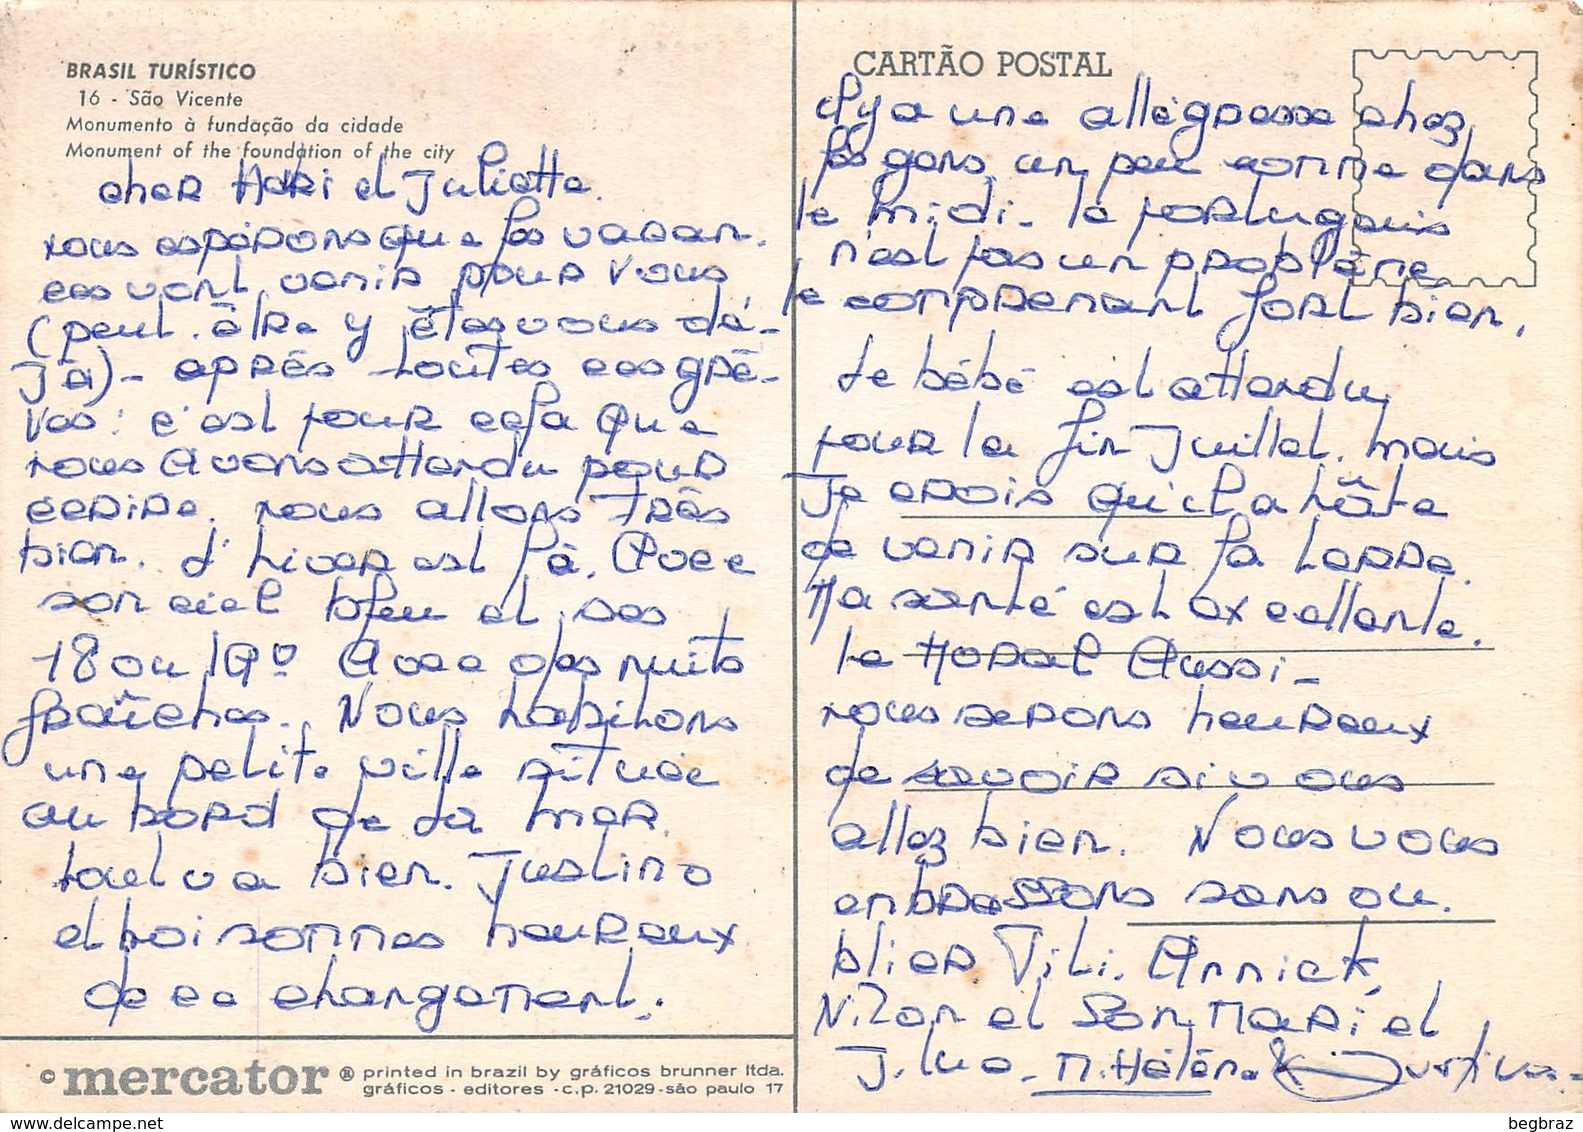 BRASIL TURÍSTICO
16 - São Vicente
Monumento à fundação da cidade
Monument of the foundation of the city
cher Mari et Juliette.
nous espérons que les vacan.
ces vont venir pour vous,
(peut-être y êtes vous dé-
jà) - après toutes ces grè-
ves: c'est pour cela que
nous avons attendu pour
écrire. nous allons très
bien. l'hiver est là, avec
son ciel bleu et ses
18 ou 19° avec des nuits
fraîches. Nous habitons
une petite ville située
au bord de la mer.
tout va bien. Justino
et moi sommes heureux
de ce changement.
© mercator ® printed in brazil by gráficos brunner ltda.
gráficos - editores - c.p. 21029 - são paulo 17
CARTÃO POSTAL
il y a une allégresse chez
les gens, un peu comme dans
le midi - le portugais
n'est pas un problème,
le comprenant fort bien,
Le bébé est attendu,
pour la fin Juillet. mais
Je crois qu'il a hâte
de venir sur la terre.
Ma santé est excellente.
le Moral Aussi -
nous serons heureux
de savoir si vous
allez bien. Nous vous
embrassons sans ou.
blier Annick,
et son Mari et
M. Hélène & Justino -
begbraz